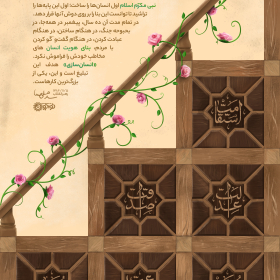 نبی مکرّم اسلام اول انسان‌ها را ساخت؛ اول این پایه‌ها را
تراشید تا توانست این بنا را بر روی دوش آنها قرار دهد.
در تمام مدت آن ده سال، پیغمبر در همه‌جا، در
بحبوحه جنگ، در هنگام ساختن، در هنگام
عبادت کردن، در هنگام گفت‌و گو کردن
با مردم، بنای هویت انسان های
مخاطب خودش را فراموش نکرد.
«انسان‌سازی» هدف این
تبلیغ است و این، یکی از
بزرگ‌ترین کارهاست.
استقامت
صداقت
عدالت